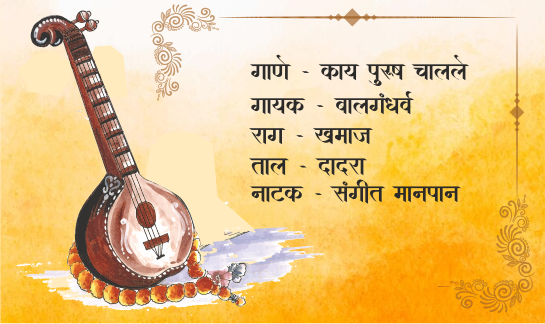 गाणे - काय पुरुष चालले
गायक - वालगंधर्व
राग - खमाज
ताल - दादरा
नाटक - संगीत मानपान